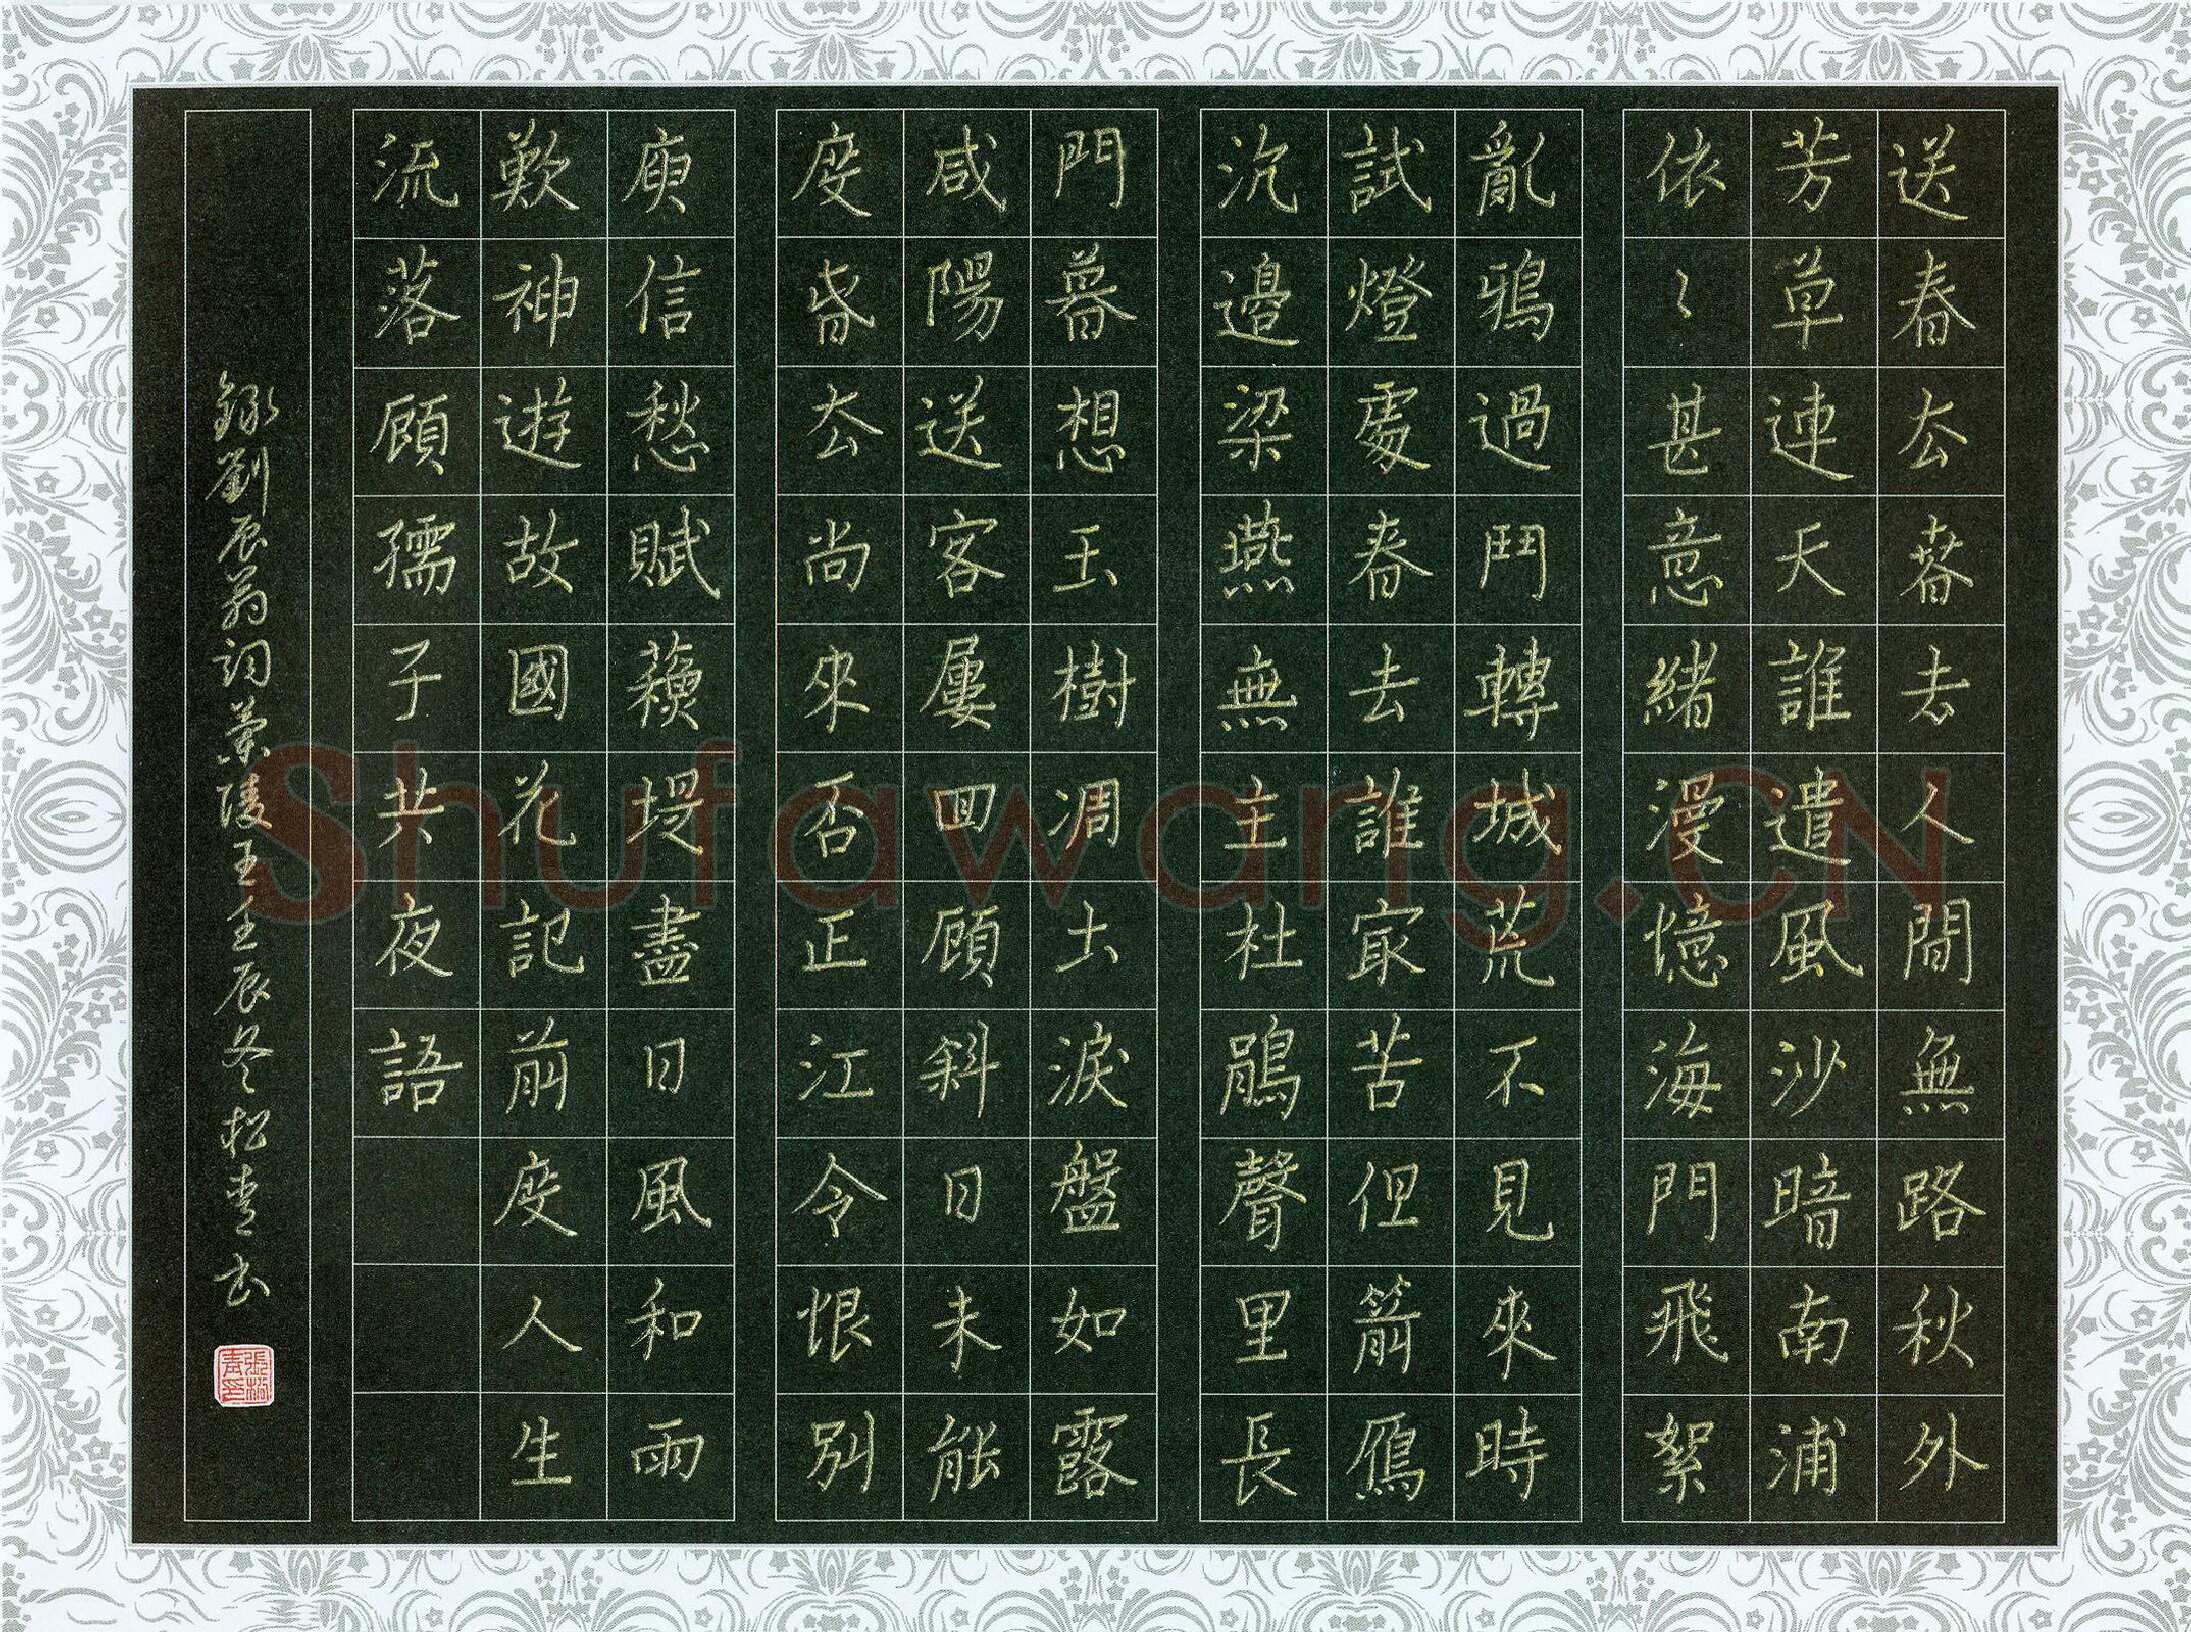 送春去春去人間無路秋外
芳草連天誰遣風沙暗南浦
依〻甚意緒漫憶海門飛絮
亂鴉過鬥轉城荒不見來時
試燈處春去誰家苦但箭雁
沉邊梁燕無主杜鵑聲里長
門暮想玉樹凋土淚盤如露
咸陽送客屢回顧斜日未能
度春去尚來否正江令恨別
庾信愁賦蘇堤盡日風和雨
歎神遊故國花記前度人生
流落顧孺子共夜語
錄劉辰翁詞蘭陵王壬辰冬松青書
張松青印
Shufawang.CN